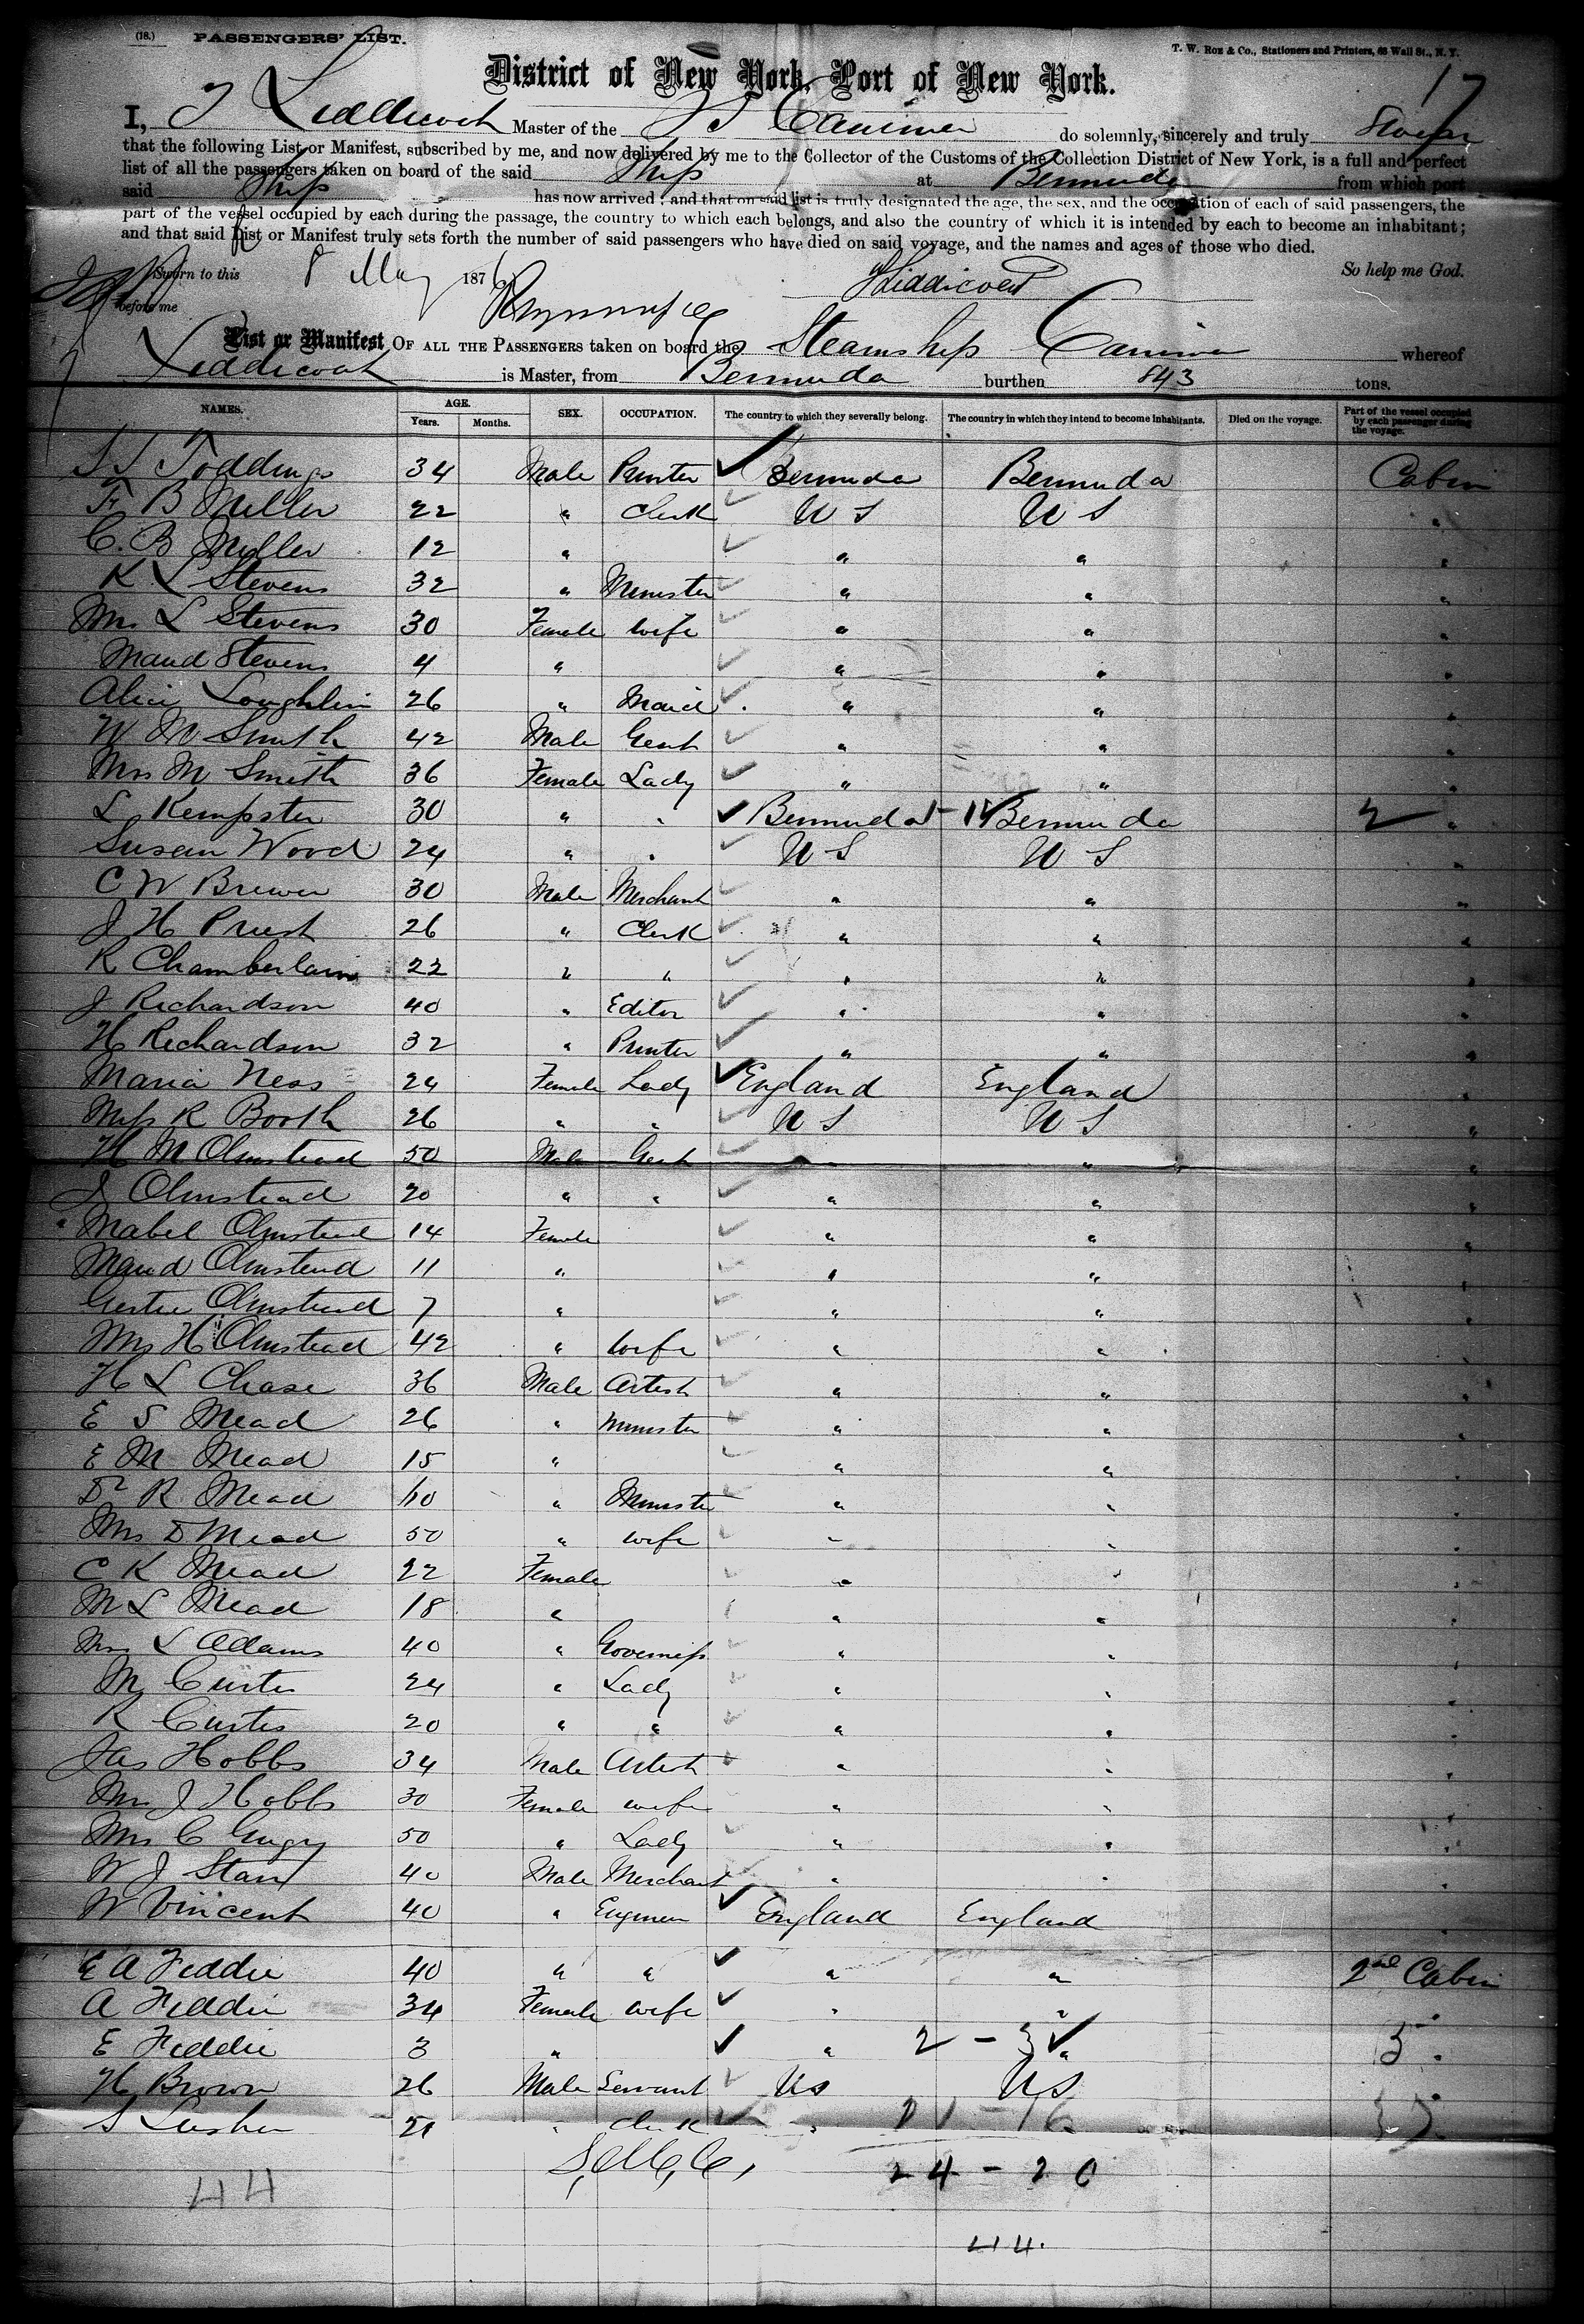 (18.) PASSENGERS' LIST.
T. W. Roe & Co., Stationers and Printers, 68 Wall St., N. Y.
17
District of New York, Port of New York.
I, J Liddicoat Master of the SS Canima do solemnly, sincerely and truly Swear
that the following List or Manifest, subscribed by me, and now delivered by me to the Collector of the Customs of the Collection District of New York, is a full and perfect
list of all the passengers taken on board of the said Ship at Bermuda from which port
said Ship has now arrived; and that on said list is truly designated the age, the sex, and the occupation of each of said passengers, the
part of the vessel occupied by each during the passage, the country to which each belongs, and also the country of which it is intended by each to become an inhabitant;
and that said List or Manifest truly sets forth the number of said passengers who have died on said voyage, and the names and ages of those who died.
Sworn to this 8 May 1876 Liddicoat So help me God.
before me
List or Manifest OF ALL THE PASSENGERS taken on board the Steamship Canima whereof
Liddicoat is Master, from Bermuda burthen 843 tons.
NAMES. AGE. Years. Months. SEX. OCCUPATION. The country to which they severally belong. The country in which they intend to become inhabitants. Died on the voyage. Part of the vessel occupied by each passenger during the voyage.
S S Toddings 34 Male Printer ✓ Bermuda Bermuda Cabin
F B Miller 22 " Clerk ✓ U S U S "
C. B Miller 12 " ✓ " " "
K L Stevens 32 " Minister ✓ " " "
Mrs L Stevens 30 Female wife ✓ " " "
Maud Stevens 4 " ✓ " " "
Alice Loughlin 26 " Maid ✓ " " "
W M Smith 42 Male Gent ✓ " " "
Mrs M Smith 36 Female Lady ✓ " " "
L Kempster 30 " " ✓ Bermuda Bermuda 2 "
Susan Wood 24 " " ✓ U S U S "
C W Brewer 30 Male Merchant ✓ " " "
J H Priest 26 " Clerk ✓ " " "
R Chamberlain 22 " " ✓ " " "
J Richardson 40 " Editor ✓ " " "
H Richardson 32 " Printer ✓ " " "
Maria Ness 24 Female Lady ✓ England England "
Miss R Booth 26 " " ✓ U S U S "
H M Olmstead 50 Male Gent ✓ " " "
J Olmstead 20 " " ✓ " " "
Mabel Olmstead 14 Female ✓ " " "
Maud Olmstead 11 " ✓ " " "
Gertie Olmstead 7 " ✓ " " "
Mrs H Olmstead 42 " wife ✓ " " "
H L Chase 36 Male Artist ✓ " " "
E S Mead 26 " Minister ✓ " " "
E M Mead 15 " ✓ " " "
Dr R Mead 60 " Minister ✓ " " "
Mrs D Mead 50 " wife ✓ " " "
C K Mead 22 Female ✓ " " "
M L Mead 18 " " " "
Mrs L Adams 40 " Governess ✓ " " "
M Curtis 24 " Lady ✓ " " "
R Curtis 20 " " ✓ " " "
Jas Hobbs 34 Male Artist ✓ " " "
Mrs J Hobbs 30 Female wife " " "
Mrs C 50 " Lady ✓ " " "
W J Starr 40 Male Merchant ✓ " " "
W Vincent 40 " Engineer ✓ England England "
E A Feddie 40 " " ✓ " " 2nd Cabin
A Feddie 34 Female wife ✓ " " "
E Feddie 3 " ✓ " 2 - 3 ✓ " 3 "
H Brown 26 Male Servant ✓ US US "
S Lusher 21 " clerk ✓ "
24 - 20
44
44.